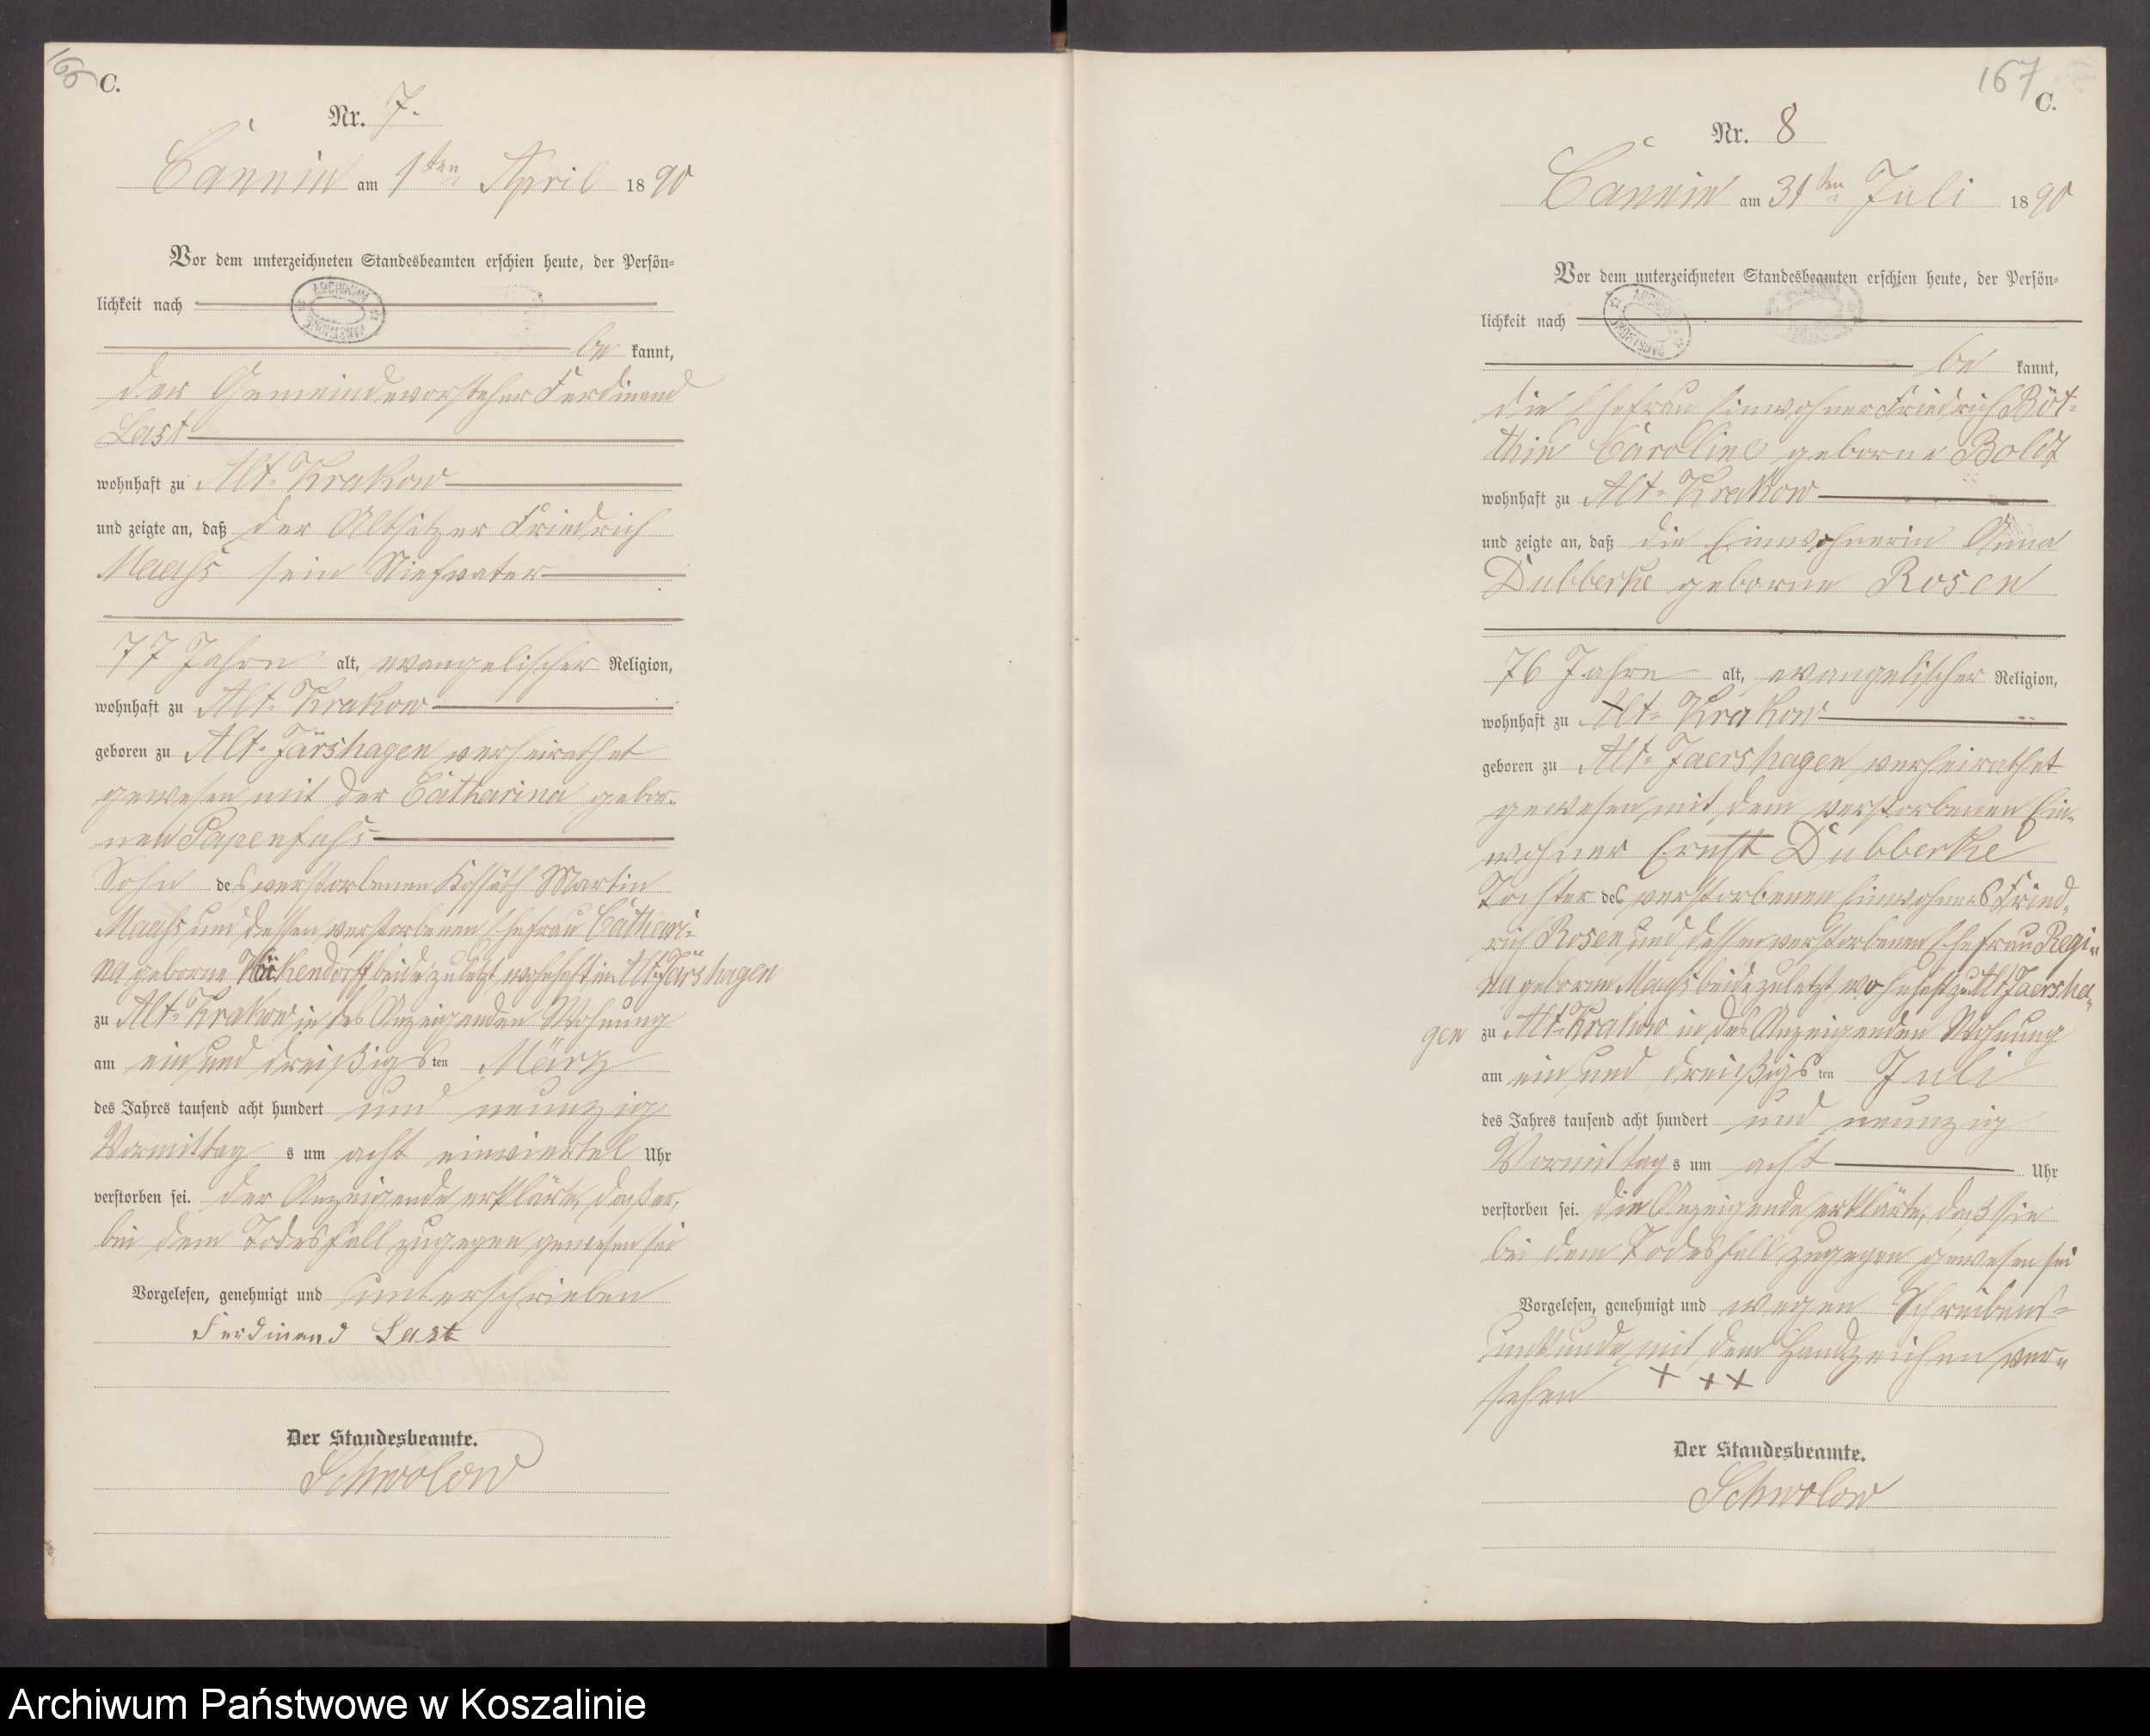 166
C.
Nr. 7.
Cannin am 1ten April 1890
Vor dem unterzeichneten Standesbeamten erschien heute, der Persön=
lichkeit nach
be kannt,
der Gemeindevorsteher Ferdinand
Last
wohnhaft zu Alt=Krakow
und zeigte an, daß der Altsitzer Friedrich
Maahs sein Stiefvater
77 Jahre alt, evangelischer Religion,
wohnhaft zu Alt=Krakow
geboren zu Alt=Järshagen verheirathet
gewesen mit der Catharina gebor=
nen Papenfuhs
Sohn des verstorbenen Kossäth Martin
Maahs und dessen verstorbenen Ehefrau Cathari=
na geborne beide zuletzt wohnhaft in Alt=Järshagen
zu Alt=Krakow in des Anzeigenden Wohnung
am ein und dreißigsten März
des Jahres tausend acht hundert und neunzig
Vormittag s um acht einviertel Uhr
verstorben sei. Der Anzeigende erklärte, daß er,
bei dem Todesfall zugegen gewesen sei
Vorgelesen, genehmigt und unterschrieben
Ferdinand Last
Der Standesbeamte.
Schwolow
167
C.
Nr. 8
Cannin am 31ten Juli 1890
Vor dem unterzeichneten Standesbeamten erschien heute, der Persön=
lichkeit nach
be kannt,
die Ehefrau Einwohner Friedrich Böt=
thin Caroline geborne Boldt
wohnhaft zu Alt=Krakow
und zeigte an, daß die Einwohnerin Anna
Dubberke geborne Rosen
76 Jahre alt, evangelischer Religion,
wohnhaft zu Alt=Krakow
geboren zu Alt=Jaershagen verheirathet
gewesen mit dem verstorbenen Ein=
wohner Ernst Dubberke
Tochter des verstorbenen Einwohners Fried=
rich Rosen und dessen verstorbenen Ehefrau Regi=
na geborne Maahs beide zuletzt wohnhaft zu Alt Jaersha=
gen zu Alt=Krakow in des Anzeigenden Wohnung
am ein und dreißigsten Juli
des Jahres tausend acht hundert und neunzig
Vormittags um acht Uhr
verstorben sei. Die Anzeigende erklärte, daß sie
bei dem Todesfall zugegen gewesen sei
Vorgelesen, genehmigt und wegen Schreibens=
unkunde mit dem Handzeichen ver=
sehen + + +
Der Standesbeamte.
Schwolow
Archiwum Państwowe w Koszalinie